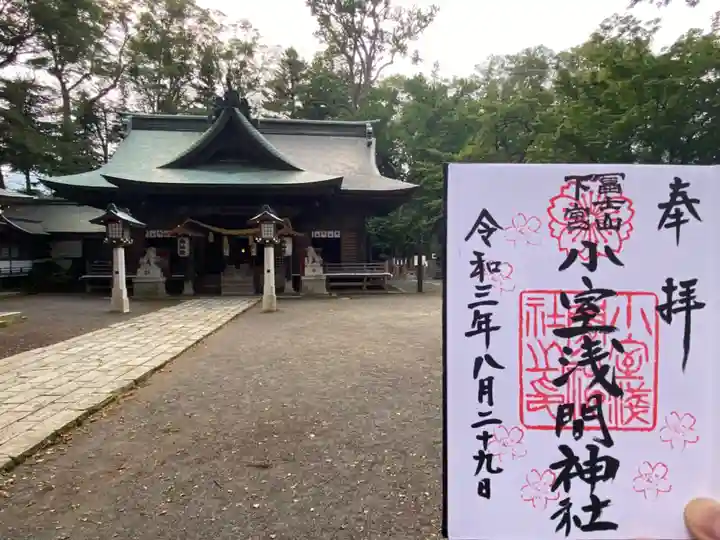 奉拝
冨士山
下宮
小室浅間神社
令和三年八月二十九日